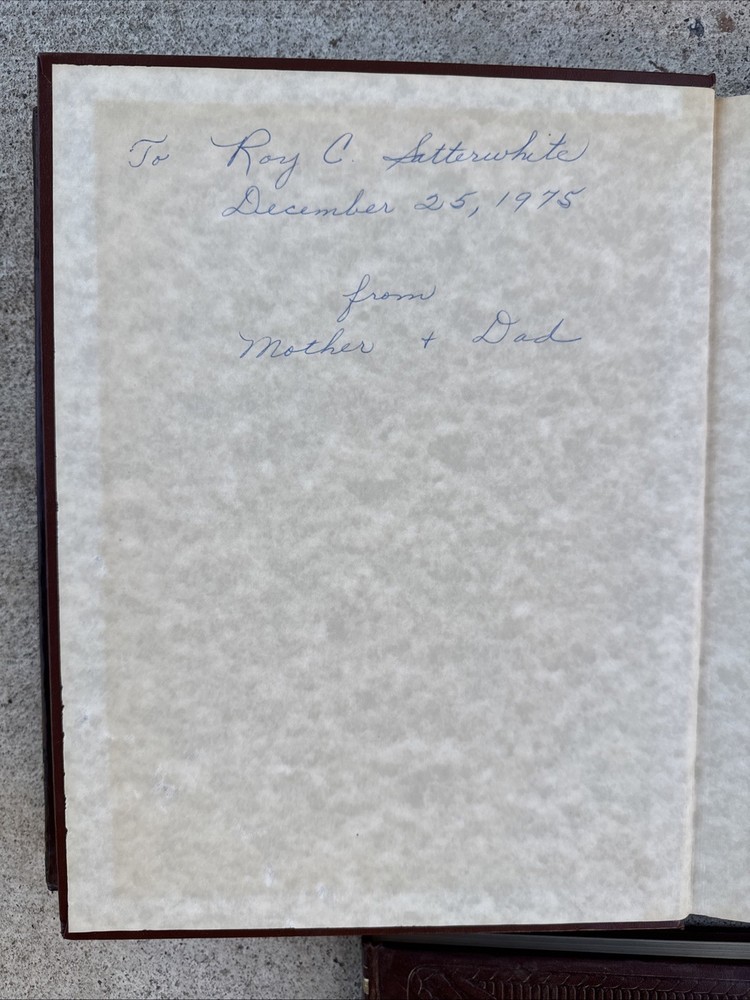 To Roy C. Satterwhite
December 25, 1975
from
Mother + Dad